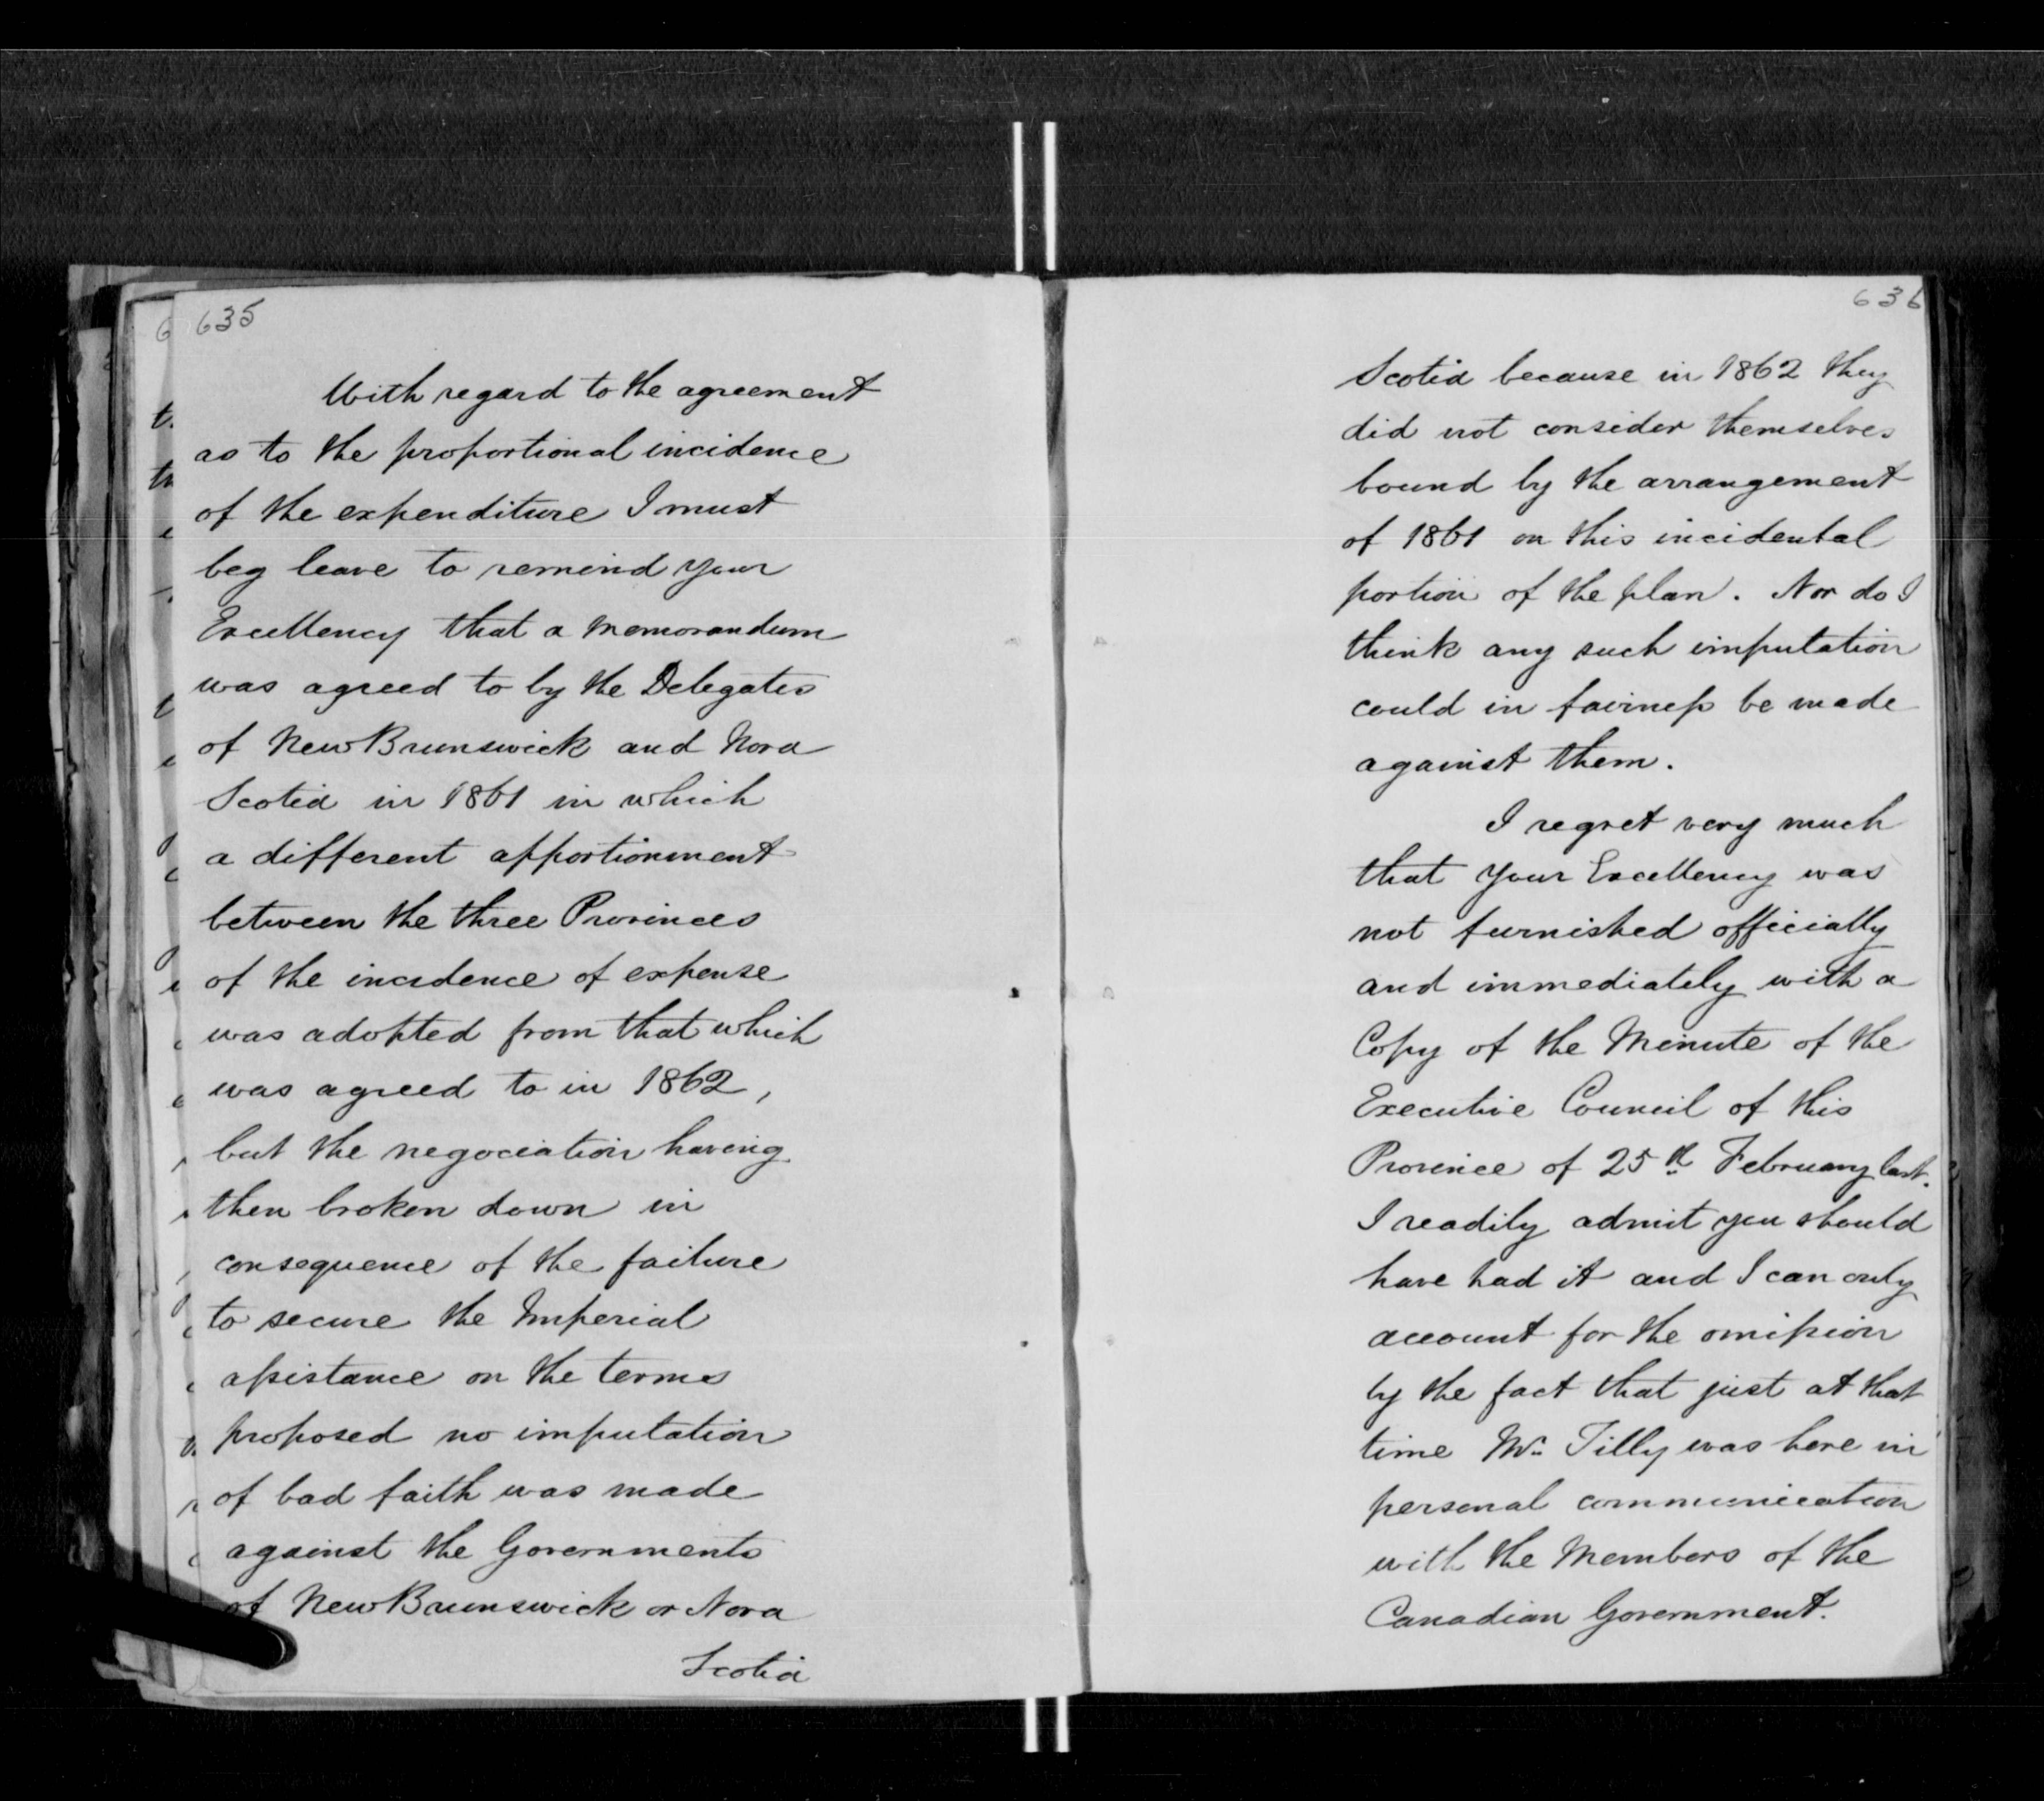 635
With regard to the agreement
as to the proportional incidence
of the expenditure I must
beg leave to remind your
Excellency that a Memorandum
was agreed to by the Delegates
of New Brunswick and Nova
Scotia in 1861 in which
a different apportionment
between the three Provinces
of the incidence of expense
was adopted from that which
was agreed to in 1862,
but the negociation having
then broken down in
consequence of the failure
to secure the Imperial
assistance on the terms
proposed no imputation
of bad faith was made
against the Governments
of New Brunswick or Nova
Scotia
636
Scotia because in 1862 they
did not consider themselves
bound by the arrangement
of 1861 on this incidental
portion of the plan. Nor do I
think any such imputation
could in fairness be made
against them.
I regret very much
that Your Excellency was
not furnished officially
and immediately with a
Copy of the Minute of the
Executive Council of this
Province of 25th February last.
I readily admit you should
have had it and I can only
account for the omission
by the fact that just at that
time Mr. Tilly was here in
personal communication
with the Members of the
Canadian Government.